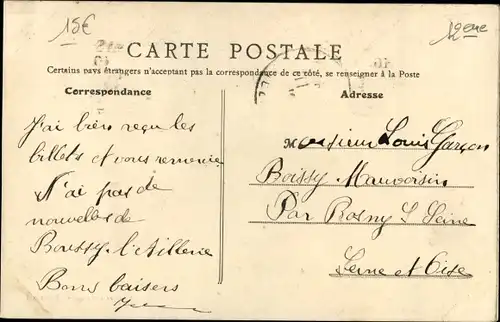 15€
12eme
CARTE POSTALE
Certains pays étrangers n'acceptant pas la correspondance de ce côté, se renseigner à la Poste
Correspondance
Adresse
J'ai bien reçu les
billets et vous remercie
N'ai pas de
nouvelles de
Boissy-l'Aillerie
Bons baisers
Monsieur Louis Garçon
Boissy Mauvoisin
Par Rosny S Seine
Seine et Oise